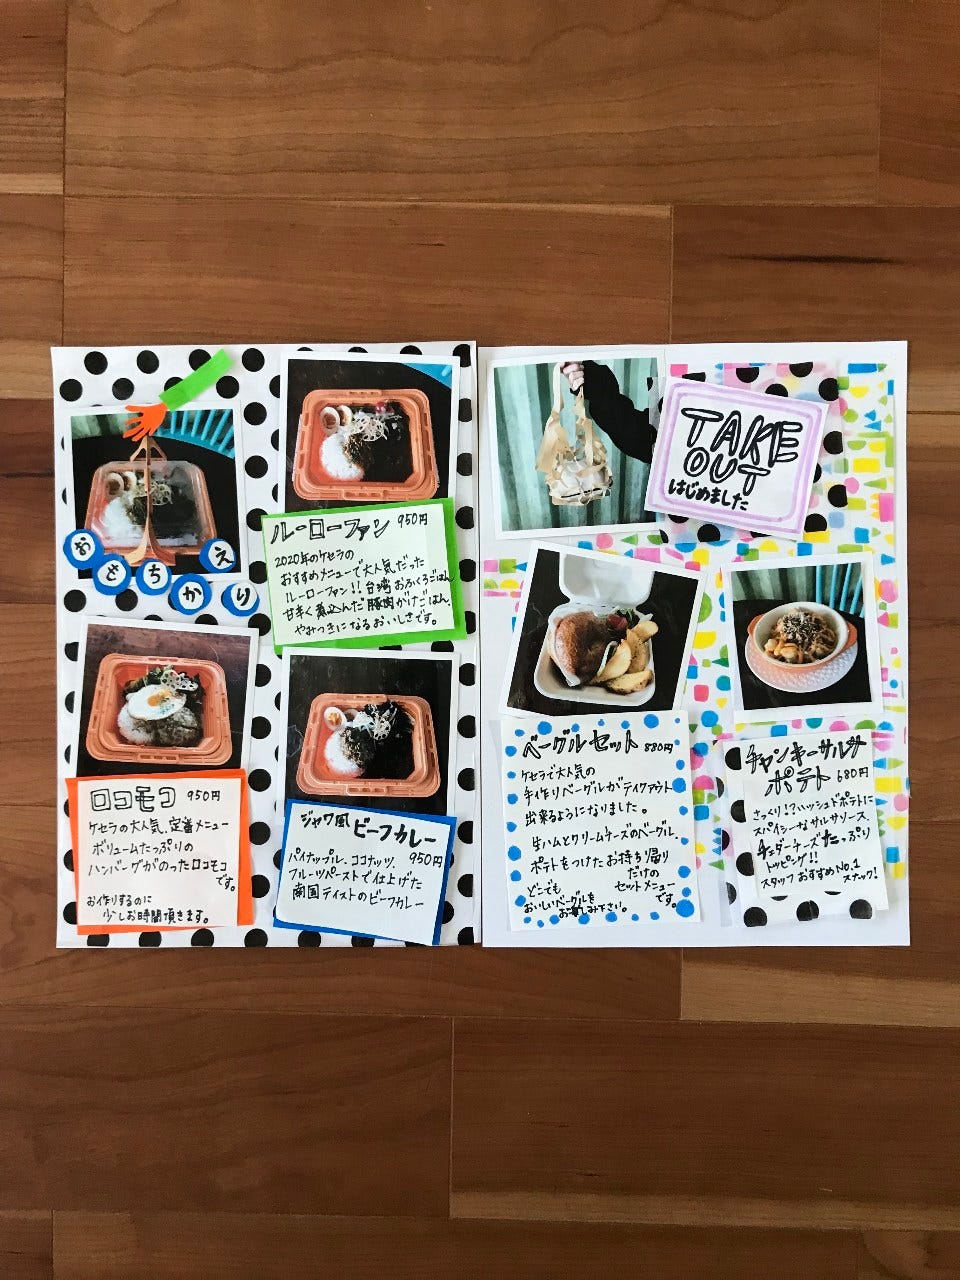 おもちかえり
ルーローファン 950円
2020年のケセラの
おすすめメニューで大人気だった
ルーローファン!! 台湾おふくろごはん
甘辛く煮込んだ豚肉がけごはん。
やみつきになるおいしさです。
ロコモコ 950円
ケセラの大人気、定番メニュー
ボリュームたっぷりの
ハンバーグがのったロコモコ
です。
お作りするのに
少しお時間頂きます。
ジャワ風 ビーフカレー
950円
パイナップル、ココナッツ、
フルーツペーストで仕上げた
南国テイストのビーフカレー
TAKE
OUT
はじめました
ベーグルセット 880円
ケセラで大人気の
手作りベーグルがテイクアウト
出来るようになりました。
生ハムとクリームチーズのベーグル、
ポテトをつけたお持ち帰り
だけの
セットメニュー
です。
どこでも
おいしいベーグルを
お楽しみ下さい。
チャンキーサルサ
ポテト 680円
さっくり!?ハッシュドポテトに
スパイシーなサルサソース、
チェダーチーズたっぷり
トッピング!!
スタッフおすすめNo.1
スナック!